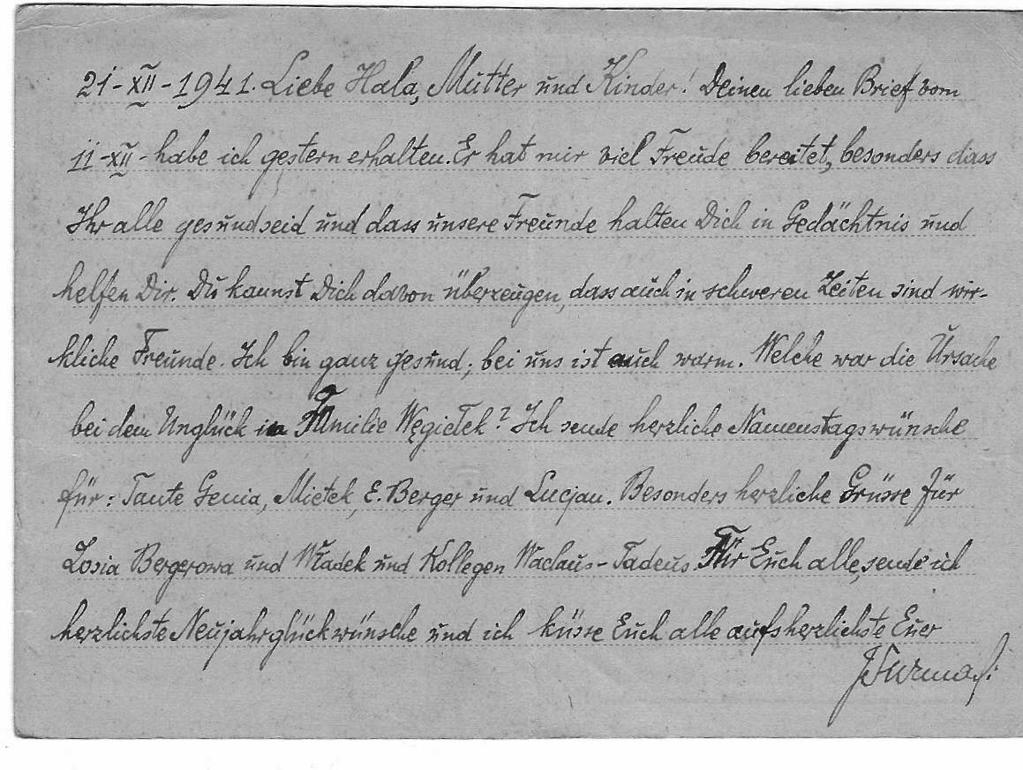 21-XII-1941. Liebe Hala, Mutter und Kinder! Deinen lieben Brief vom
11-XII- habe ich gestern erhalten. Er hat mir viel Freude bereitet, besonders dass
Ihr alle gesund seid und dass unsere Freunde halten Dich in Gedächtnis und
helfen Dir. Du kannst Dich davon überzeugen, dass auch in schweren Zeiten sind wir-
kliche Freunde. Ich bin ganz gesund; bei uns ist auch warm. Welche war die Ursache
bei dem Unglück in Familie Węgiełek? Ich sende herzliche Namenstagswünsche
für: Tante Genia, Mietek, E. Berger und Lucjan. Besonders herzliche Grüsse für
Zosia Bergerowa und Władek und Kollegen Waclaus-Tadeus. Für Euch alle, sende ich
herzlichste Neujahrglückwünsche und ich küsse Euch alle aufs herzlichste Euer